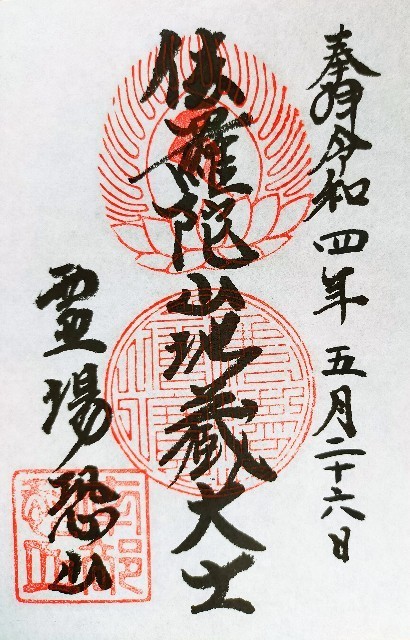 奉拝令和四年五月二十六日
伽羅陀山地蔵大士
霊場恐山